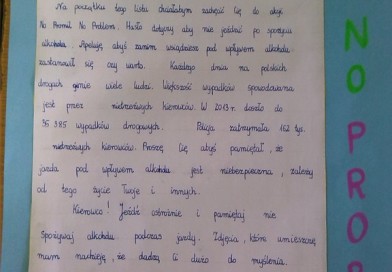 Na początku tego listu chciałabym zachęcić Cię do akcji
No Promil No Problem. Hasło dotyczy aby nie jeździć po spożyciu
alkoholu. Apeluję abyś zanim wsiądziesz pod wpływem alkoholu
zastanowił się czy warto. Każdego dnia na polskich
drogach ginie wiele ludzi. Większość wypadków spowodowana
jest przez nietrzeźwych kierowców. W 2013 r. doszło do
35 385 wypadków drogowych. Policja zatrzymała 162 tys.
nietrzeźwych kierowców. Proszę Cię abyś pamiętał, że
jazda pod wpływem alkoholu jest niebezpieczna, zależy
od tego życie Twoje i innych.
Kierowco! Jeźdź ostrożnie i pamiętaj nie
spożywaj alkoholu podczas jazdy. Zdjęcia, które umieszczę
mam nadzieję, że dadzą Ci dużo do myślenia.
NO PRO